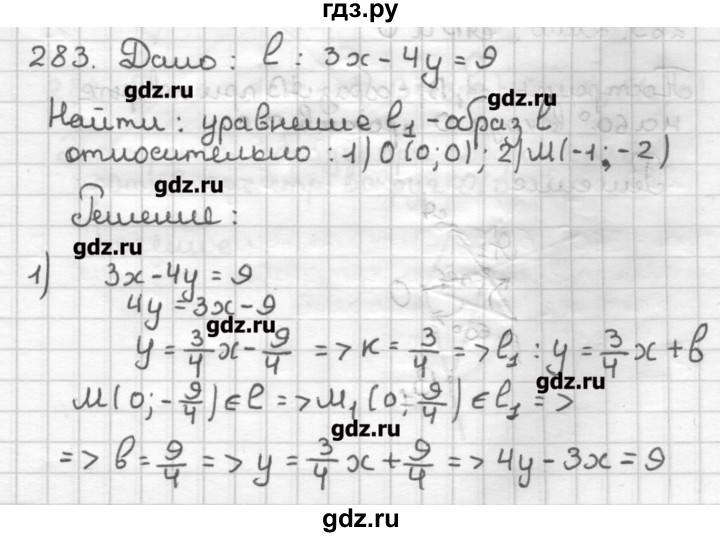 гдз.ру
283. Дано: l: 3x - 4y = 9
gdz.ru
gdz.ru
Найти: уравнение l₁ - образ l
относительно: 1) O(0; 0); 2) M(-1; -2)
gdz.ru
Решение:
gdz.ru
1) 3x - 4y = 9
4y = 3x - 9
gdz.ru
y = 3/4 x - 9/4 => к = 3/4 => l₁: y = 3/4 x + в
gdz.ru
M(0; -9/4) ∈ l => M₁(0; 9/4) ∈ l₁ =>
gdz.ru
=> в = 9/4 => y = 3/4 x + 9/4 => 4y - 3x = 9
gdz.ru